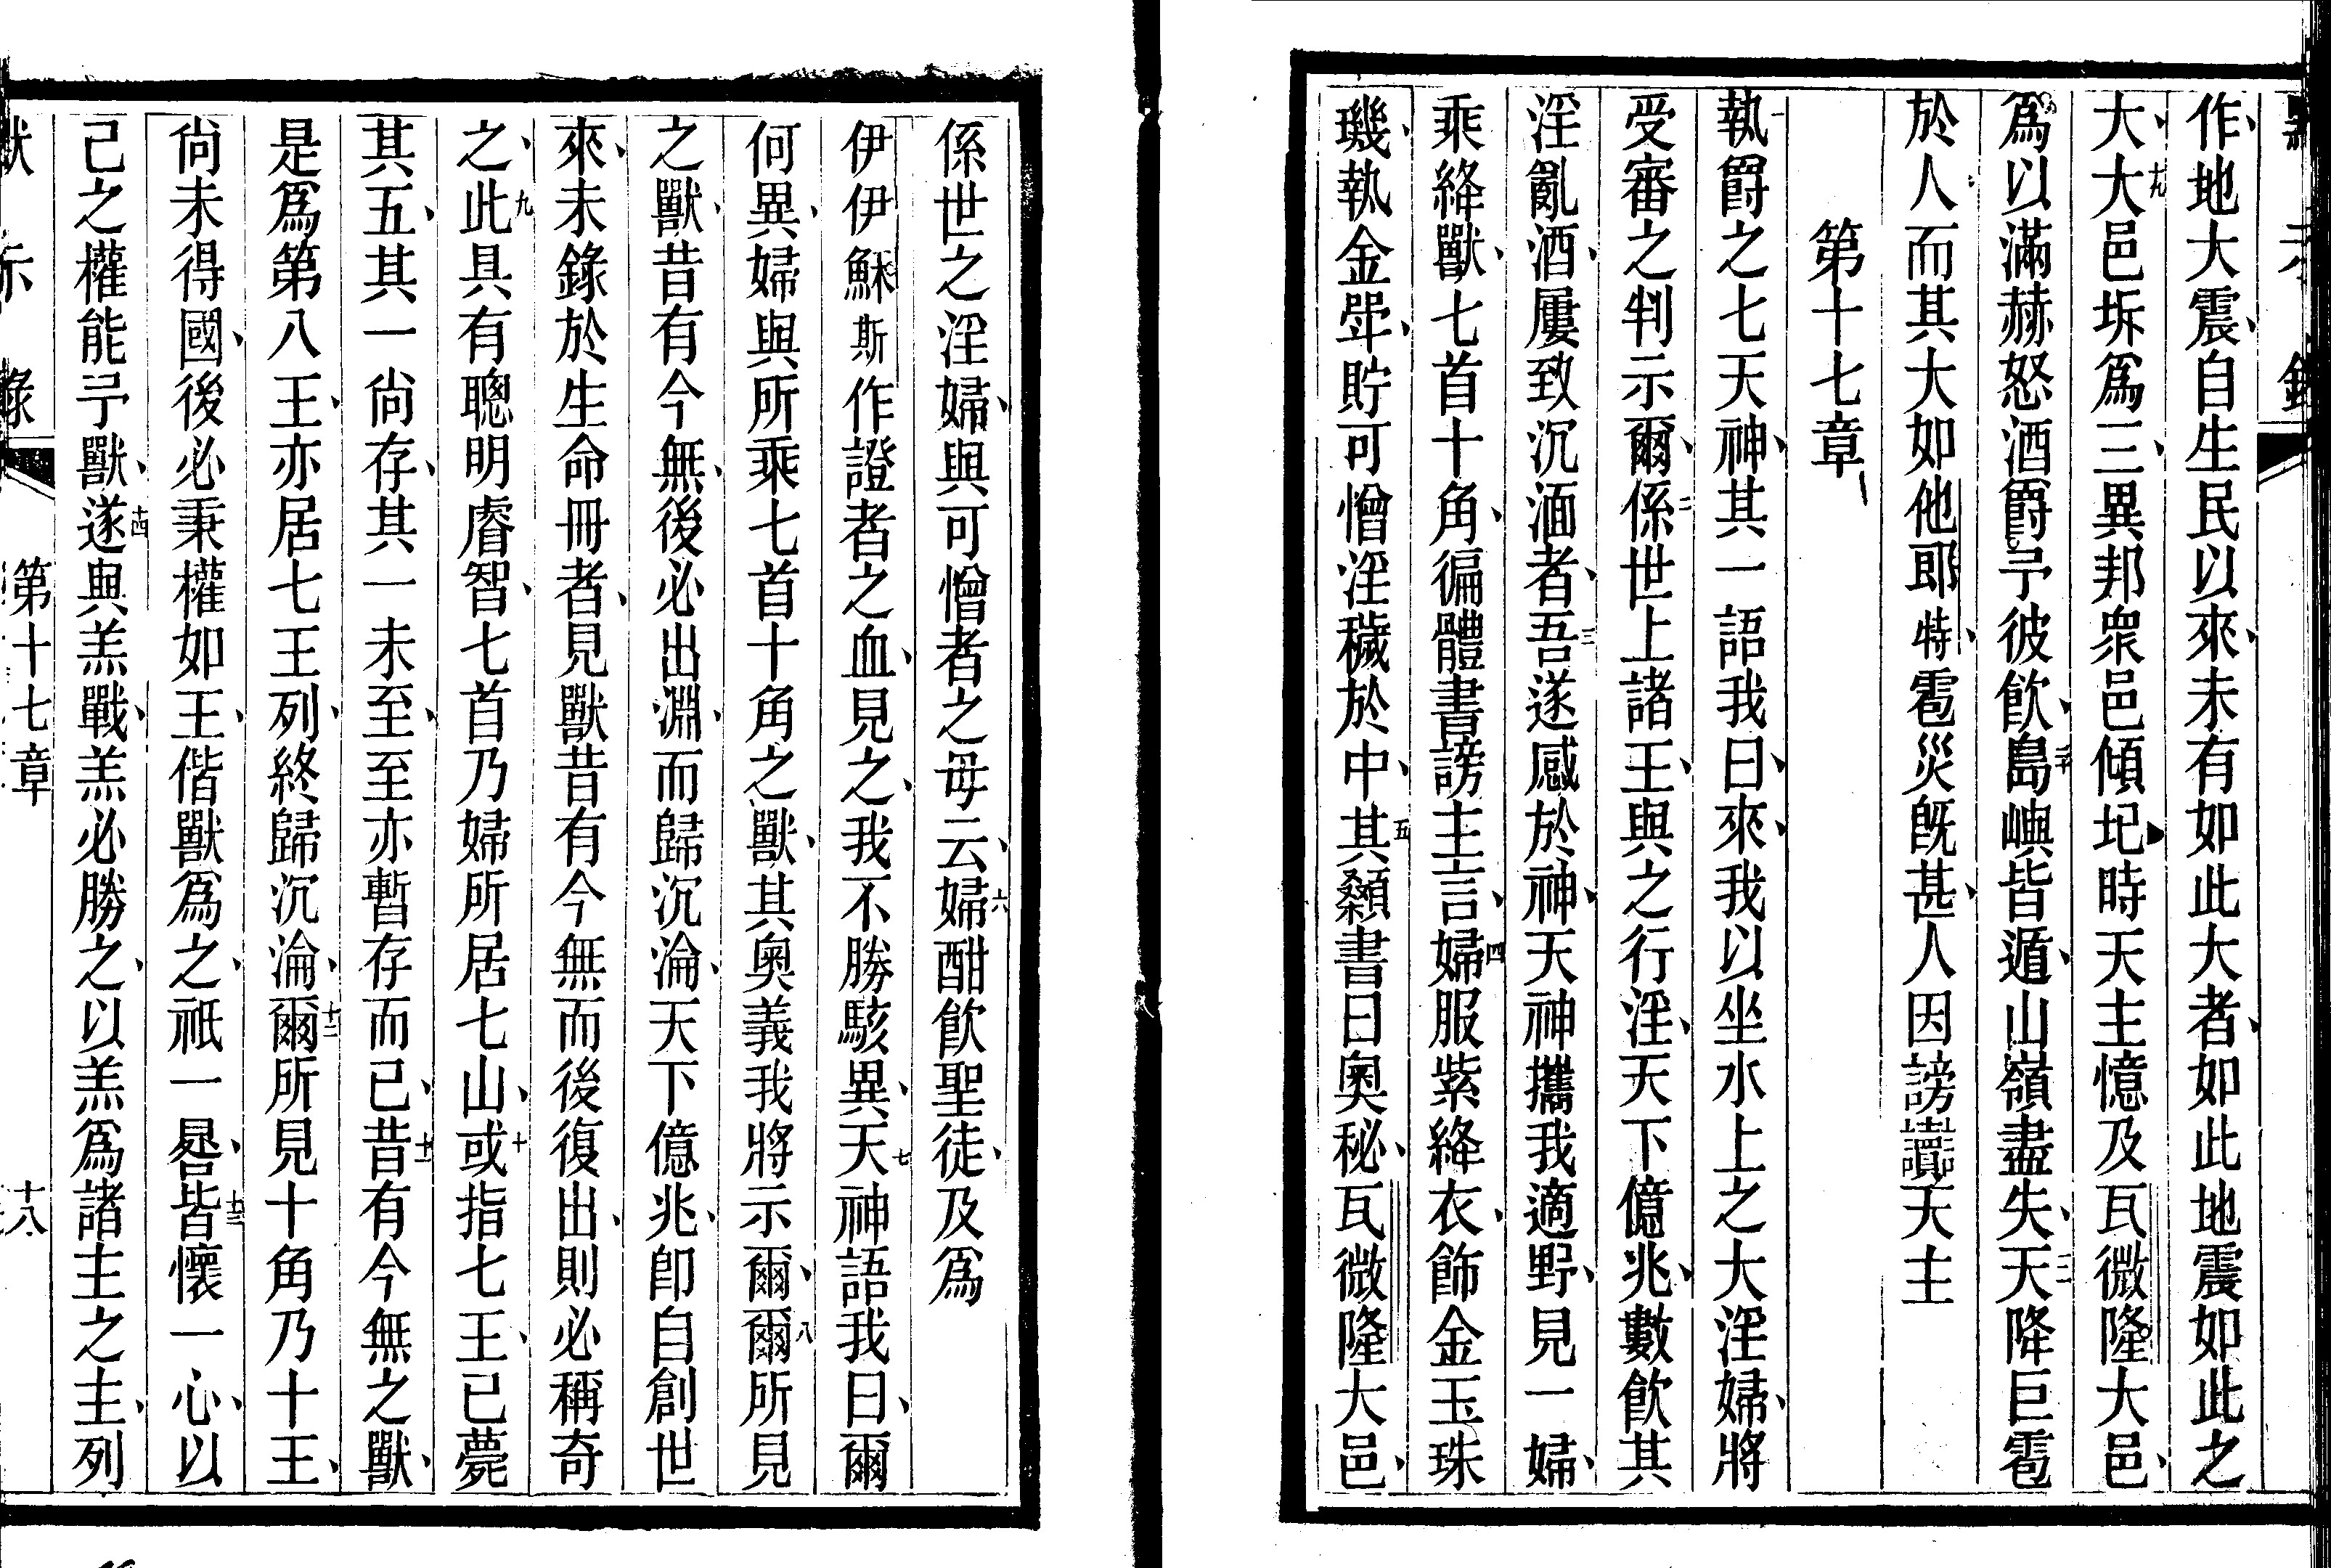 默示錄
作地大震自生民以來未有如此大者如此地震如此之
大十九大邑坼爲三異邦衆邑傾圮時天主憶及瓦微隆大邑
爲以滿赫怒酒爵予彼飮二十島嶼皆遁山嶺盡失二一天降巨雹
於人而其大如他郎特雹災旣甚人因謗讟天主
第十七章
一執爵之七天神其一語我曰來我以坐水上之大淫婦將
受審之判示爾二係世上諸王與之行淫天下億兆數飮其
淫亂酒屢致沉湎者三吾遂感於神天神攜我適野見一婦
乘絳獸七首十角徧體書謗主言四婦服紫絳衣飾金玉珠
璣執金斝貯可憎淫穢於中五其顙書曰奧秘瓦微隆大邑
係世之淫婦與可憎者之母云六婦酣飮聖徒及爲
伊伊穌斯作證者之血見之我不勝駭異七天神語我曰爾
何異婦與所乘七首十角之獸其奧義我將示爾八爾所見
之獸昔有今無後必出淵而歸沉淪天下億兆卽自創世
來未錄於生命冊者見獸昔有今無而後復出則必稱奇
之九此具有聰明睿智七首乃婦所居七山十或指七王已薨
其五其一尙存其一未至至亦暫存而已十一昔有今無之獸
是爲第八王亦居七王列終歸沉淪十二爾所見十角乃十王
尙未得國後必秉權如王偕獸爲之祇一晷十三皆懷一心以
己之權能予獸十四遂與羔戰羔必勝之以羔爲諸主之主列
默示錄 第十七章 十八